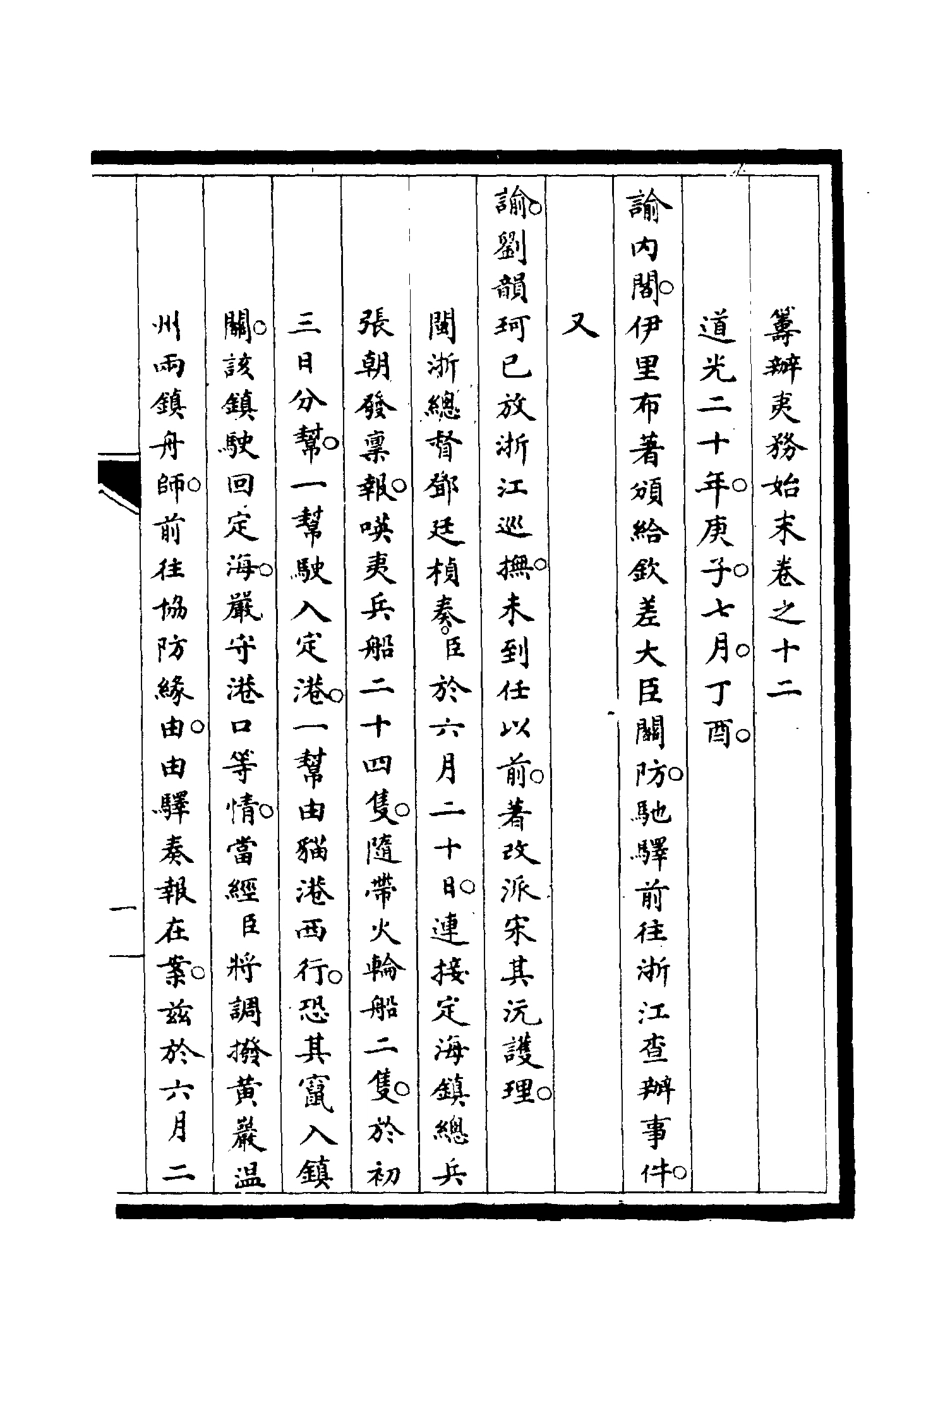 籌辦夷務始末卷之十二
道光二十年。庚子。七月。丁酉。
諭內閣。伊里布著頒給欽差大臣關防。馳驛前往浙江查辦事件。
又
諭。劉韻珂已放浙江巡撫。未到任以前。著改派宋其沅護理。
閩浙總督鄧廷楨奏。臣於六月二十日。連接定海鎮總兵
張朝發稟報。𠸄夷兵船二十四隻。隨帶火輪船二隻。於初
三日分幫。一幫駛入定港。一幫由貓港西行。恐其竄入鎮
關。該鎮駛回定海。嚴守港口等情。當經臣將調撥黃巖温
州兩鎮舟師。前往協防緣由。由驛奏報在案。茲於六月二
一